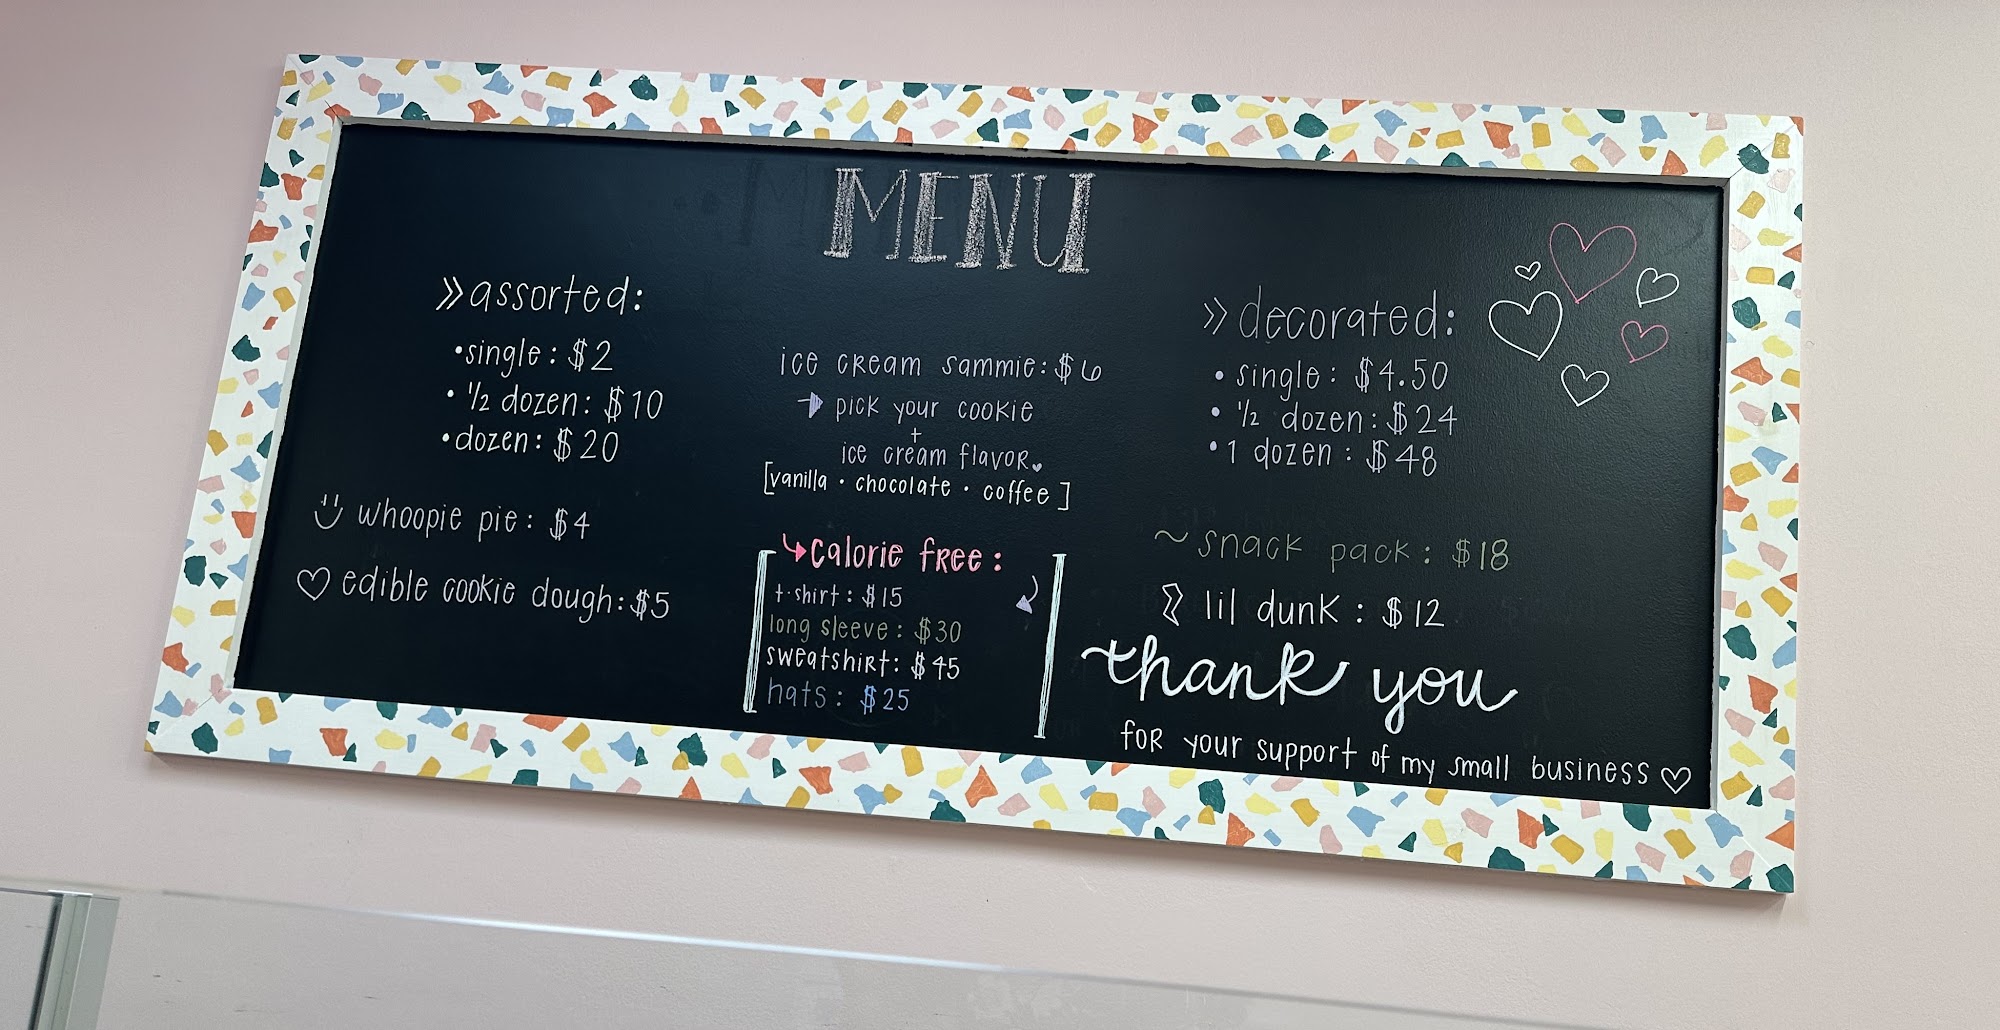 MENU
» assorted:
• single: $2
• 1/2 dozen: $10
• dozen: $20
whoopie pie: $4
♡ edible cookie dough: $5
ice cream sammie: $6
→ pick your cookie
+
ice cream flavor ♥
[vanilla • chocolate • coffee]
↳ Calorie free:
t-shirt: $15
long sleeve: $30
sweatshirt: $45
hats: $25
» decorated:
• single: $4.50
• 1/2 dozen: $24
• 1 dozen: $48
~ snack pack: $18
lil dunk: $12
thank you
for your support of my small business ♡